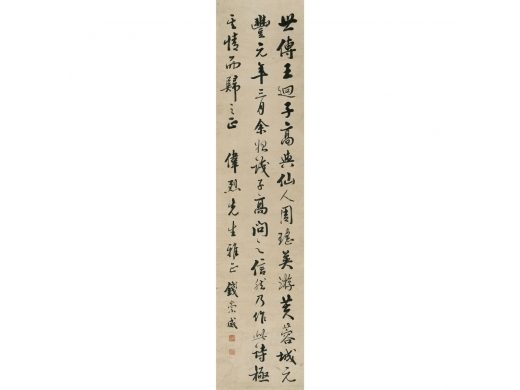 世傳王迥子高與仙人周瑤英遊芙蓉城元
豐元年三月余始識子高問之信然乃作此詩極
其情而歸之正 偉烈先生雅正 錢崇威